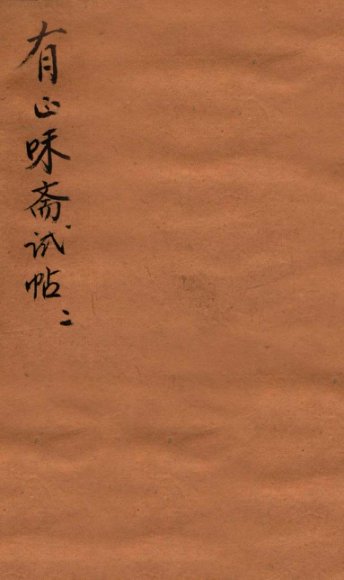 有正味斋试帖二